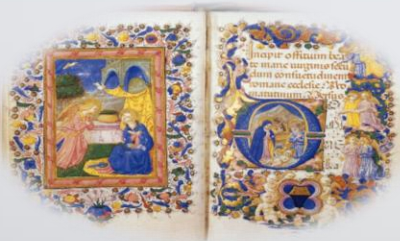 Incipit offitium bea
te marie virginis secu
dum consuetudinem
romane ecclesie. Ad
matutinum. Versus